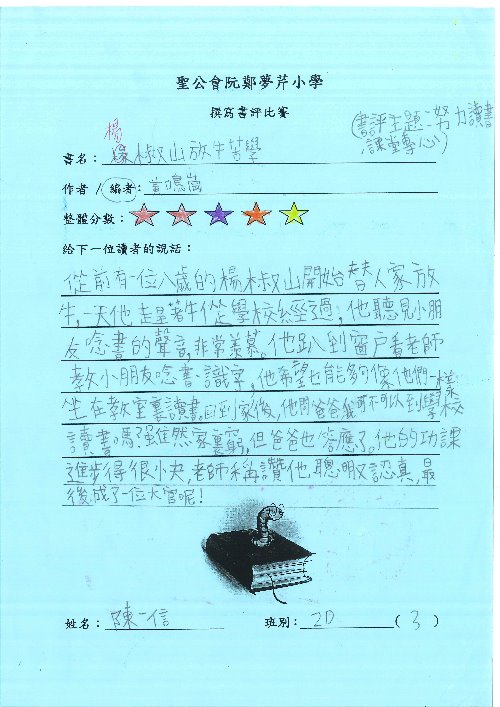 聖公會阮鄭夢芹小學
撰寫書評比賽
(書評主題:努力讀書
課堂專心)
楊
書名: 椒山放牛苦學
作者/編者: 黃鳴崗
整體分數:
給下一位讀者的說話:
從前有一位八歲的楊椒山開始替人家放
牛,一天他走著牛從學校經過,他聽見小朋
友唸書的聲音,非常羨慕。他趴到窗戶看老師
教小朋友唸書、識字,他希望也能夠像他們一樣
坐在教室裏讀書,回到家後,他問爸爸我可不可以到學校
讀書嗎?雖然家裏窮,但爸爸也答應了。他的功課
進步得很快,老師稱讚他聰明又認真,最
後成了一位大官呢!
姓名: 陳一信 班別: 2D (3)